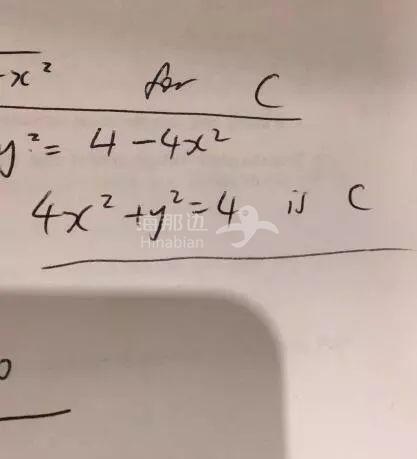 -x² for C
y² = 4 - 4x²
4x² + y² = 4 is C
海那边
Hinabian
0